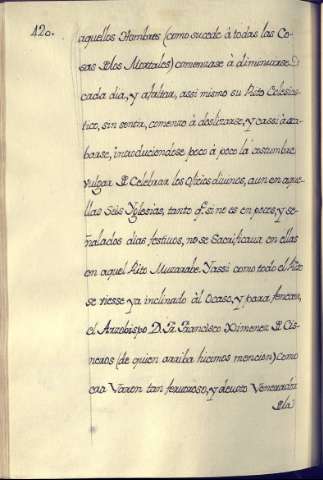 420.
aquellos Hombres (como sucede à todas las Co-
sas de los Mortales) comenzase à diminuirse
cada dia, y afaltar, assi mismo su Rito Eclesias-
tico, sin sentir, comenzo à deslizarse, y cassi à aca-
barse, introduciendose poco à poco la costumbre
vulgar de Celebrar los Oficios divinos, aun en aque-
llas Seis Yglesias, tanto q.e sino es en pocos, y se-
ñalados dias festivos, no se Sacrificaua en ellas
en aquel Rito Muzarabe. Yassi como todo el Rito
se viesse ya inclinado àl Ocaso, y para fenecer,
el Arzobispo D. Fr. Francisco Ximenez de Cis-
neros (de quien arriba hicimos mencion) como
era Varon tan feruoroso, y deuoto Venerador
de la